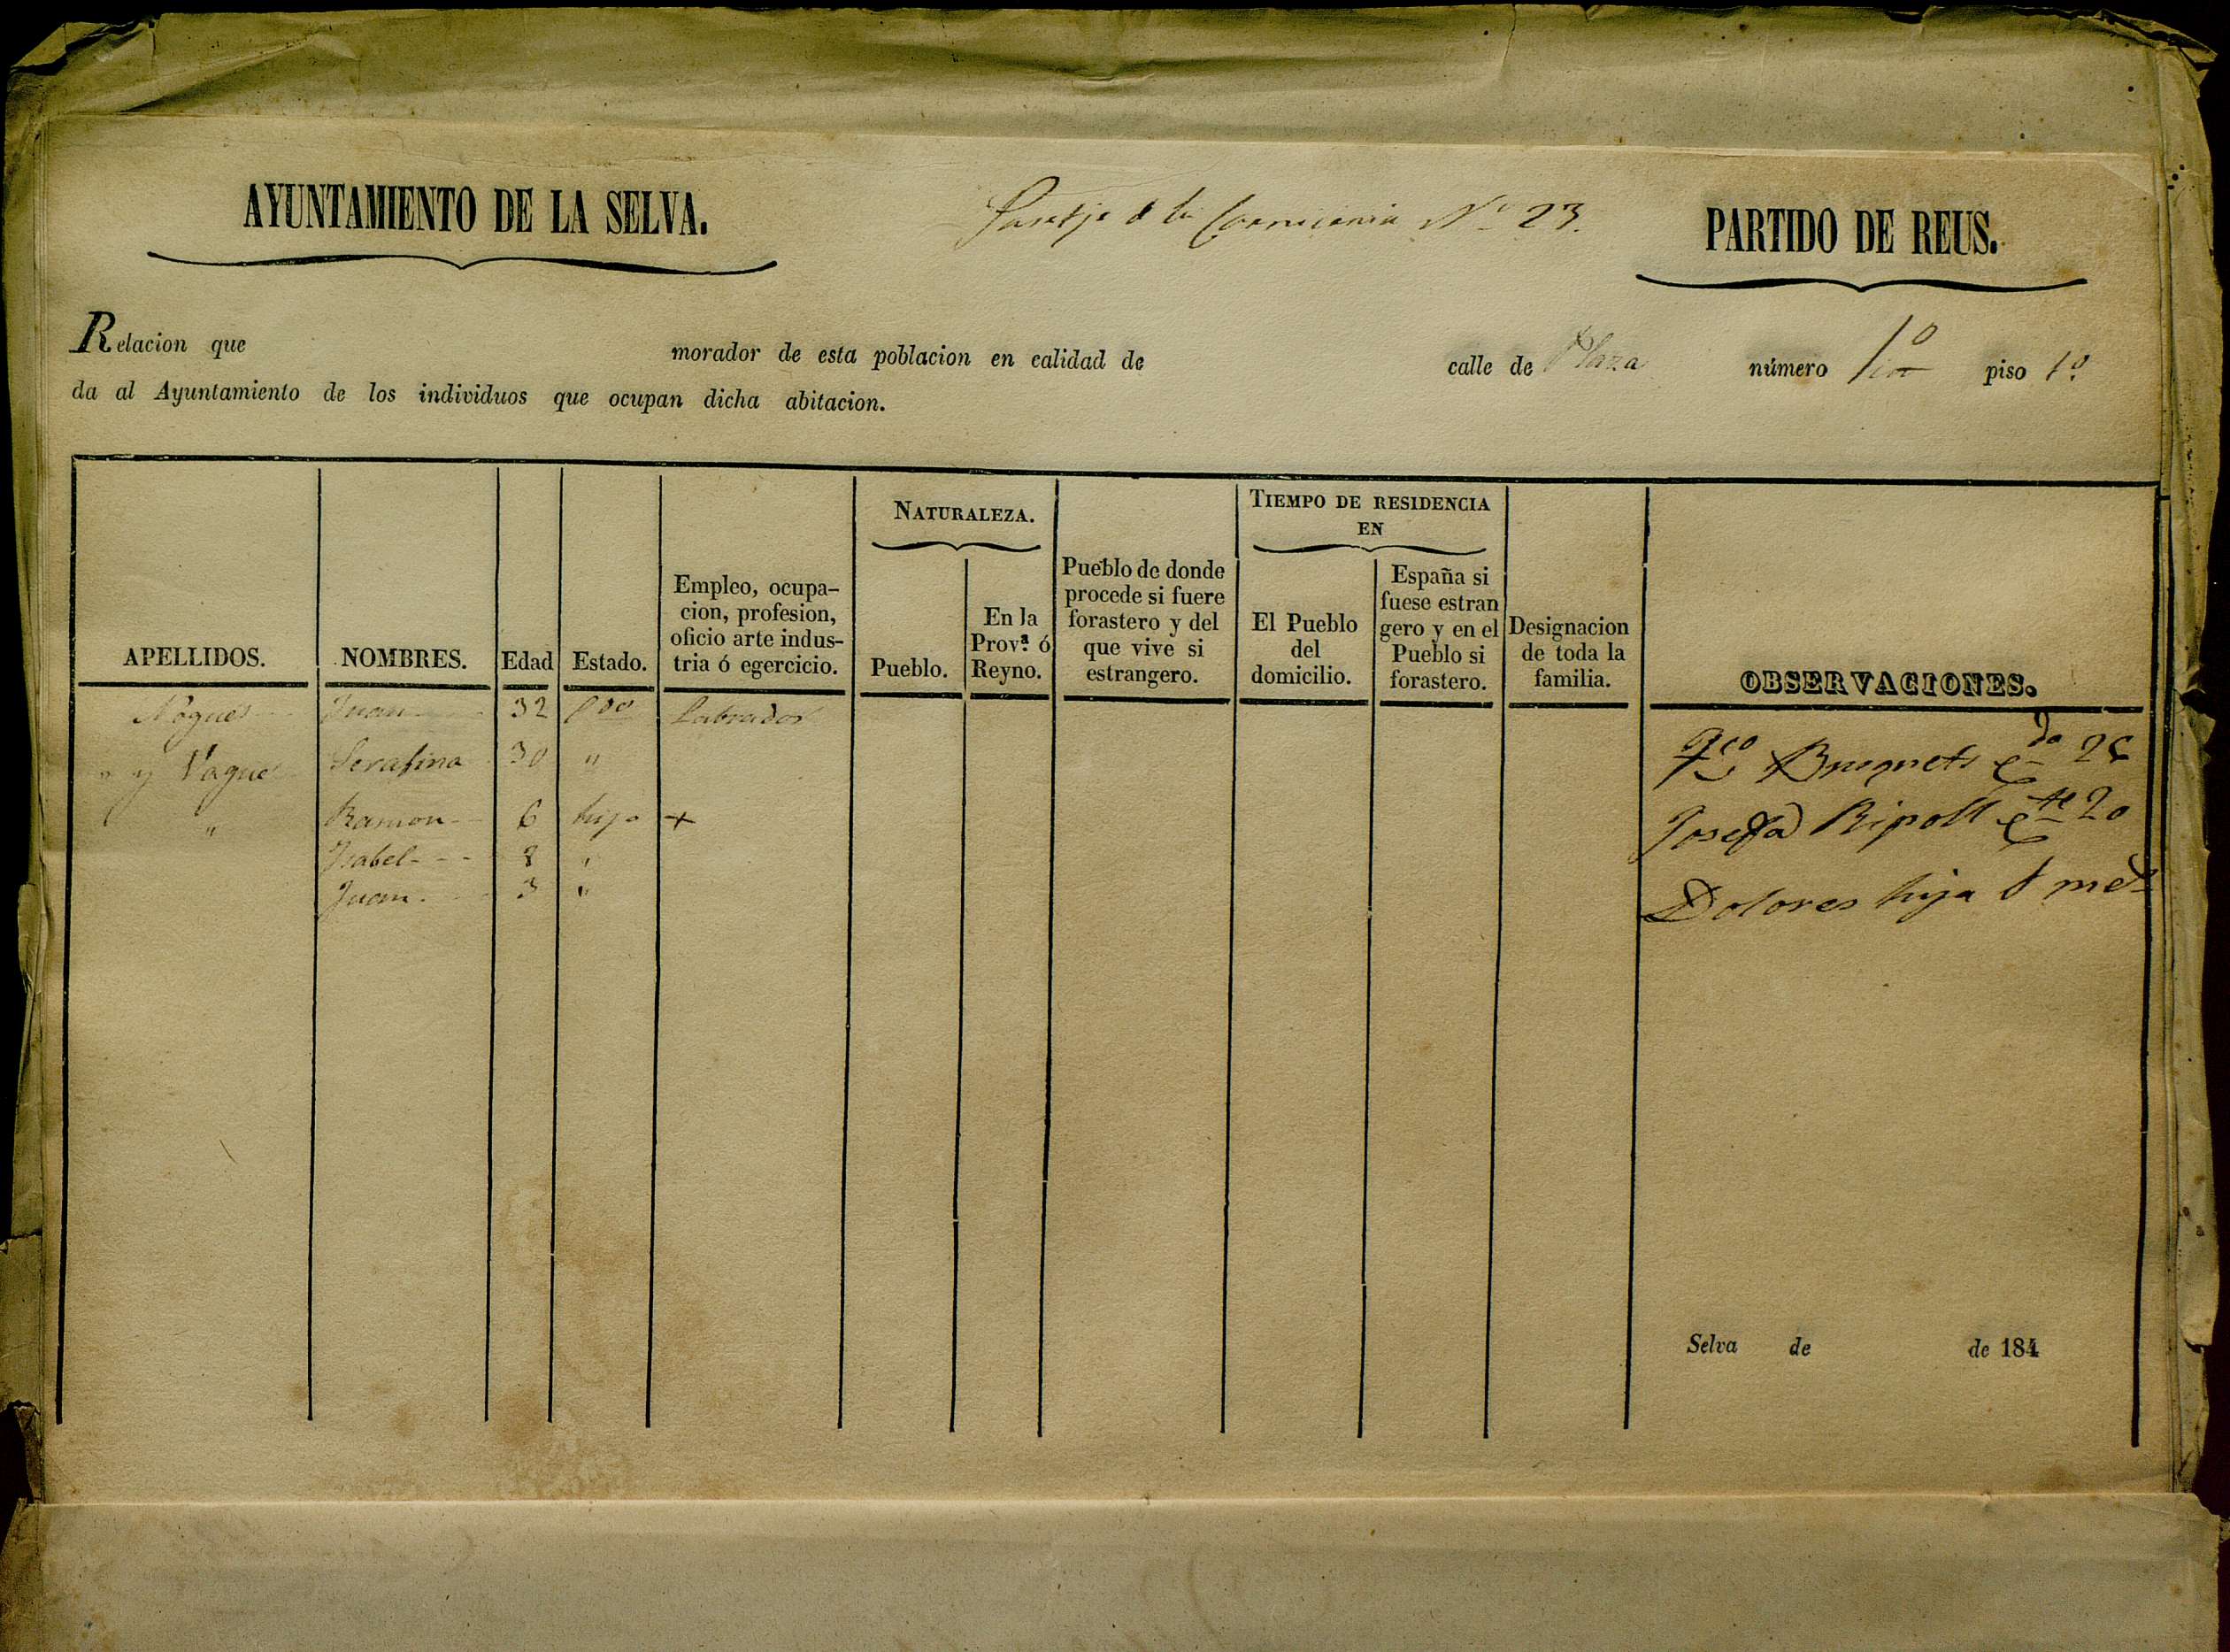 AYUNTAMIENTO DE LA SELVA.
Nº 23.
PARTIDO DE REUS.
Relacion que morador de esta poblacion en calidad de calle de Plaza número 1º piso 1º
da al Ayuntamiento de los individuos que ocupan dicha abitacion.
APELLIDOS.
NOMBRES.
Edad
Estado.
Empleo, ocupa-
cion, profesion,
oficio arte indus-
tria ó egercicio.
NATURALEZA.
Pueblo.
En la
Prov.ª ó
Reyno.
Pueblo de donde
procede si fuere
forastero y del
que vive si
estrangero.
TIEMPO DE RESIDENCIA
EN
El Pueblo
del
domicilio.
España si
fuese estran
gero y en el
Pueblo si
forastero.
Designacion
de toda la
familia.
OBSERVACIONES.
Nogues Juan 32 Labrador
" y Vague Serafina 30 "
" Ramon 6 hijo +
Isabel 8 "
Juan 3 "
Fco Bruguets
Josefa Ripoll 20
Dolores hija
Selva de de 184